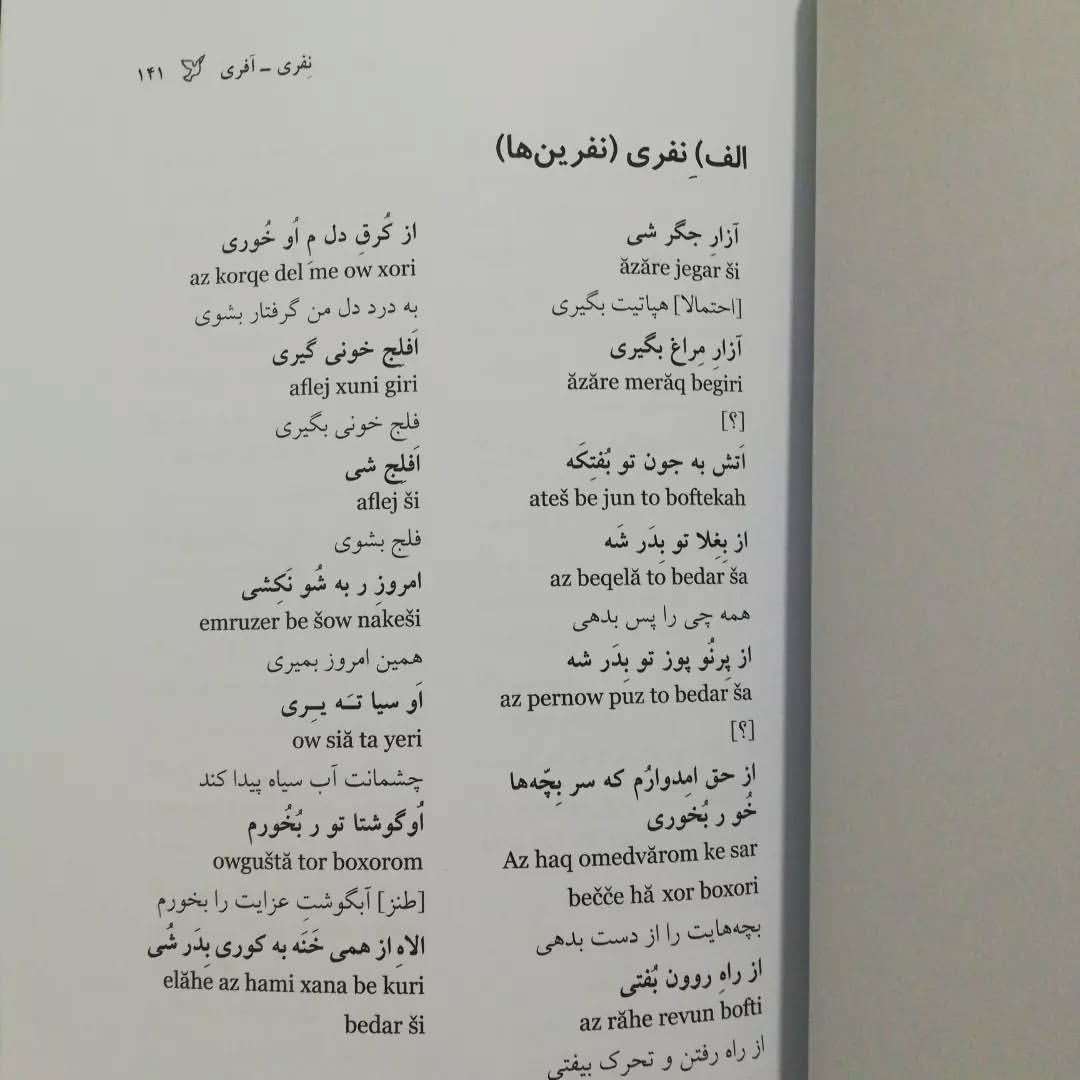 نِفری ـ آفری ۱۴۱
الف) نِفری (نفرین‌ها)
آزارِ جگر شی
ăzăre jegar ši
[احتمالا] هپاتیت بگیری
آزارِ مِراغ بگیری
ăzăre merăq begiri
[؟]
اَتش به جون تو بُفتِکَه
ateš be jun to boftekah
از بِغِلا تو بِدَر شَه
az beqelă to bedar ša
همه چی را پس بدهی
از پِرنُو پوز تو بِدَر شه
az pernow puz to bedar ša
[؟]
از حق امِدوارُم که سر بِچّه‌ها
خُو ر بُخوری
Az haq omedvărom ke sar
bečče hă xor boxori
بچه‌هایت را از دست بدهی
از راهِ روون بُفتی
az răhe revun bofti
از راه رفتن و تحرک بیفتی
از کُرقِ دل مِ اُو خُوری
az korqe del me ow xori
به درد دل من گرفتار بشوی
اَفلِج خونی گیری
aflej xuni giri
فلج خونی بگیری
اَفلِج شی
aflej ši
فلج بشوی
امروزِ ر به شُو نَکِشی
emruzer be šow nakeši
همین امروز بمیری
اَو سیا تَـه یـِری
ow siă ta yeri
چشمانت آب سیاه پیدا کند
اُوگوشتا تو ر بُخُورم
owguštă tor boxorom
[طنز] آبگوشتِ عزایت را بخورم
الاهِ از همی خَنَه به کوری بِدَر شُی
elăhe az hami xana be kuri
bedar ši